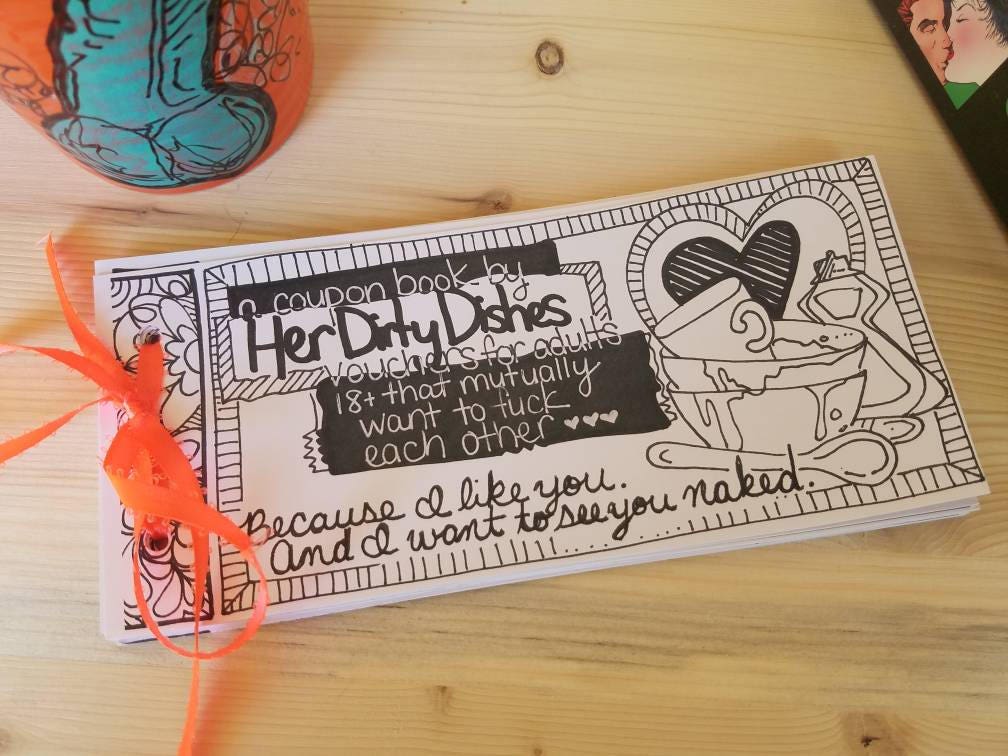 a coupon book by
HerDirtyDishes
vouchers for adults
18+ that mutually
want to fuck
each other
Because I like you.
And I want to see you naked.